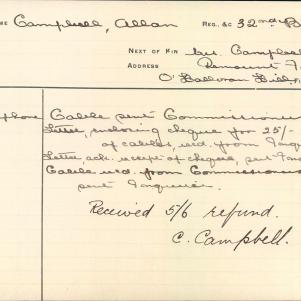 ME Campbell, Allan REG. &C 32nd B
NEXT OF KIN Mr. Campbell
ADDRESS Paramount
O'Halloran Hill
phone Cable sent Commissioner
Letter, enclosing cheque for 25/-
of cables, recd. from Inquirer
Letter ack. receipt of cheque, sent
Cable recd. from Commissioner
sent Inquirer.
Received 5/6 refund.
C. Campbell.